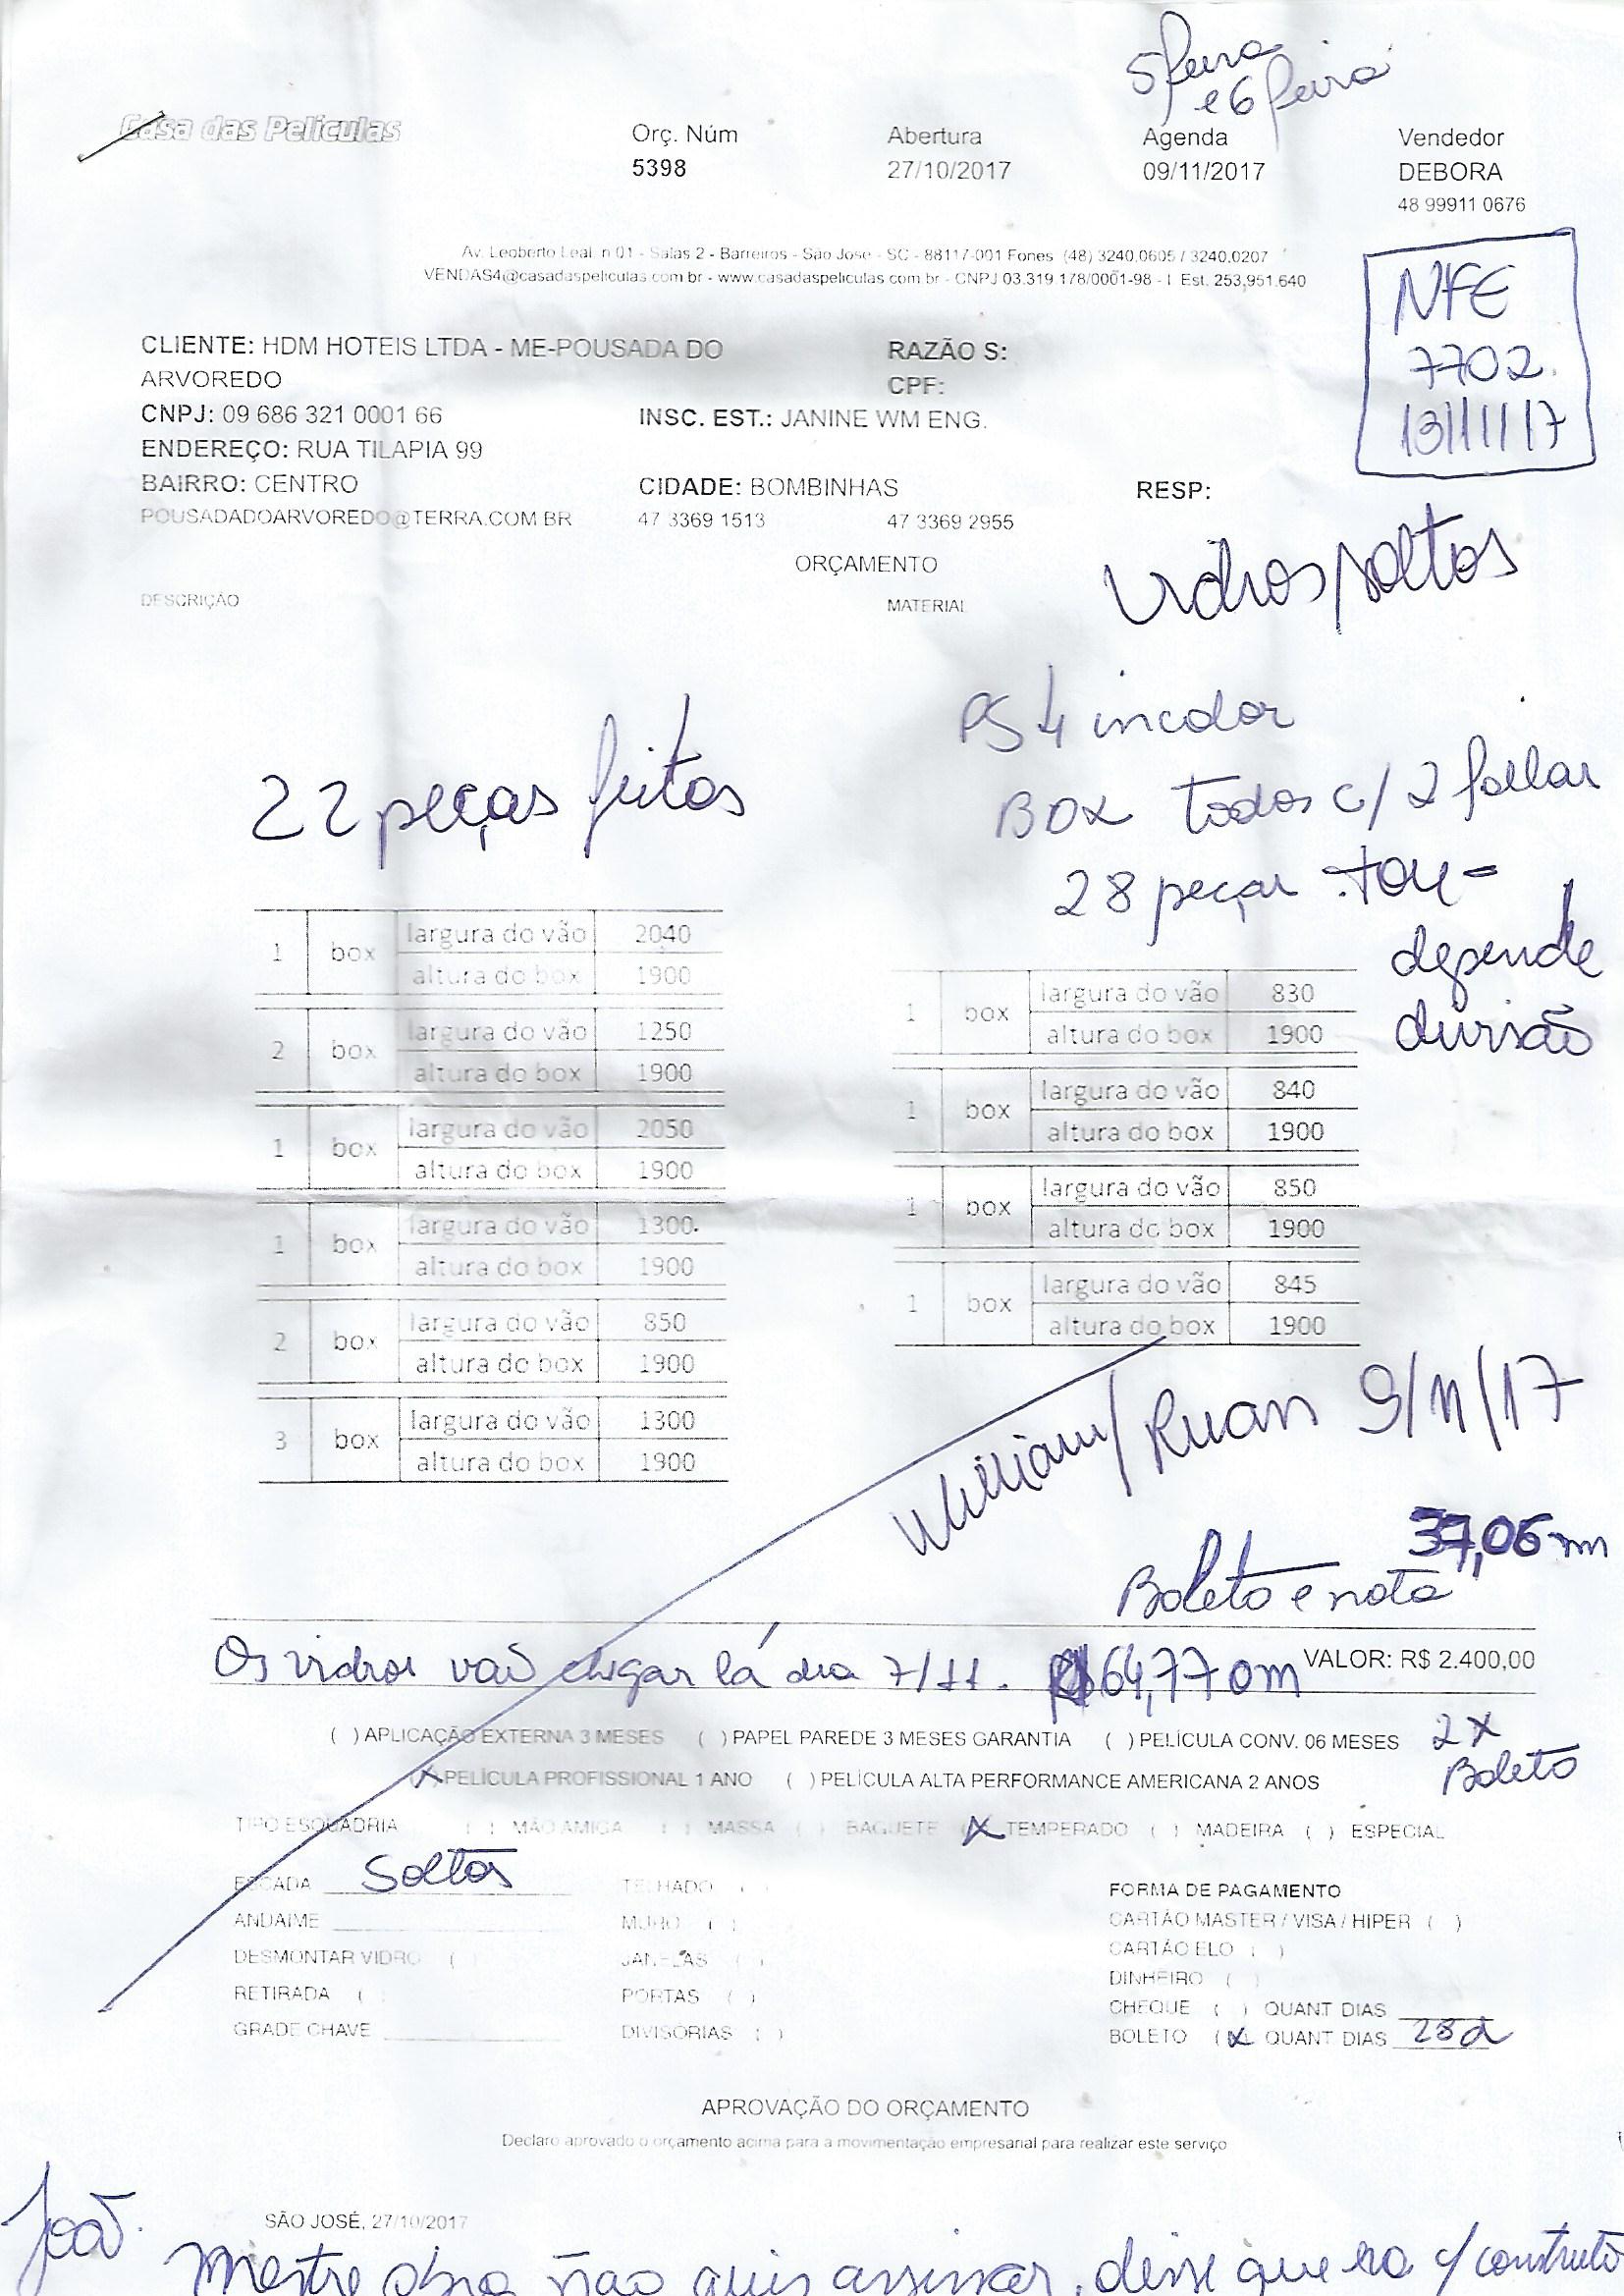 5 feira
e 6 feira
Casa das Películas
Orç. Núm Abertura Agenda Vendedor
5398 27/10/2017 09/11/2017 DEBORA
48 99911 0676
Av. Leoberto Leal. n 01 - Salas 2 - Barreiros - São José - SC - 88117-001 Fones (48) 3240.0605 / 3240.0207
VENDAS4@casadaspeliculas.com.br - www.casadaspeliculas.com.br - CNPJ 03.319.178/0001-98 - I. Est. 253.951.640
NFE
7702
13/11/17
CLIENTE: HDM HOTEIS LTDA - ME-POUSADA DO RAZÃO S:
ARVOREDO CPF:
CNPJ: 09 686 321 0001 66 INSC. EST.: JANINE WM ENG.
ENDEREÇO: RUA TILAPIA 99
BAIRRO: CENTRO CIDADE: BOMBINHAS RESP:
POUSADADOARVOREDO@TERRA.COM.BR 47 3369 1513 47 3369 2955
ORÇAMENTO
vidros soltos
DESCRIÇÃO MATERIAL
PS 4 incolor
22 peças feitas
BOX todos c/ 2 folhas
28 peças
depende
divisão
1 box largura do vão 2040
altura do box 1900
2 box largura do vão 1250
altura do box 1900
1 box largura do vão 2050
altura do box 1900
1 box largura do vão 1300
altura do box 1900
2 box largura do vão 850
altura do box 1900
3 box largura do vão 1300
altura do box 1900
1 box largura do vão 830
altura do box 1900
1 box largura do vão 840
altura do box 1900
1 box largura do vão 850
altura do box 1900
1 box largura do vão 845
altura do box 1900
William/Ruan 9/11/17
37,06 m
Boleto e nota
Os vidros vão chegar lá dia 7/11. 64,77 o m VALOR: R$ 2.400,00
( ) APLICAÇÃO EXTERNA 3 MESES ( ) PAPEL PAREDE 3 MESES GARANTIA ( ) PELÍCULA CONV. 06 MESES 2x
(X) PELÍCULA PROFISSIONAL 1 ANO ( ) PELÍCULA ALTA PERFORMANCE AMERICANA 2 ANOS Boleto
TIPO ESQUADRIA ( ) MÃO AMIGA ( ) MASSA ( ) BAGUETE (X) TEMPERADO ( ) MADEIRA ( ) ESPECIAL
ESCADA Soltos TELHADO ( )
ANDAIME MURO ( )
DESMONTAR VIDRO ( ) JANELAS ( )
RETIRADA ( ) PORTAS ( )
GRADE CHAVE DIVISÓRIAS ( )
FORMA DE PAGAMENTO
CARTÃO MASTER / VISA / HIPER ( )
CARTÃO ELO ( )
DINHEIRO ( )
CHEQUE ( ) QUANT DIAS
BOLETO (X) QUANT DIAS 28d
APROVAÇÃO DO ORÇAMENTO
Declaro aprovado o orçamento acima para a movimentação empresarial para realizar este serviço
SÃO JOSÉ, 27/10/2017
João.
Mestre obra não quis assinar, disse que era c/ construto